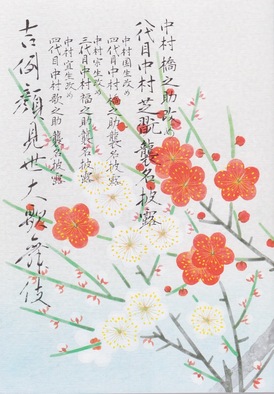 中村橋之助改め
八代目中村芝翫襲名披露
中村国生改め
四代目中村橋之助襲名披露
中村宗生改め
三代目中村福之助襲名披露
中村宜生改め
四代目中村歌之助襲名披露
吉例顔見世大歌舞伎